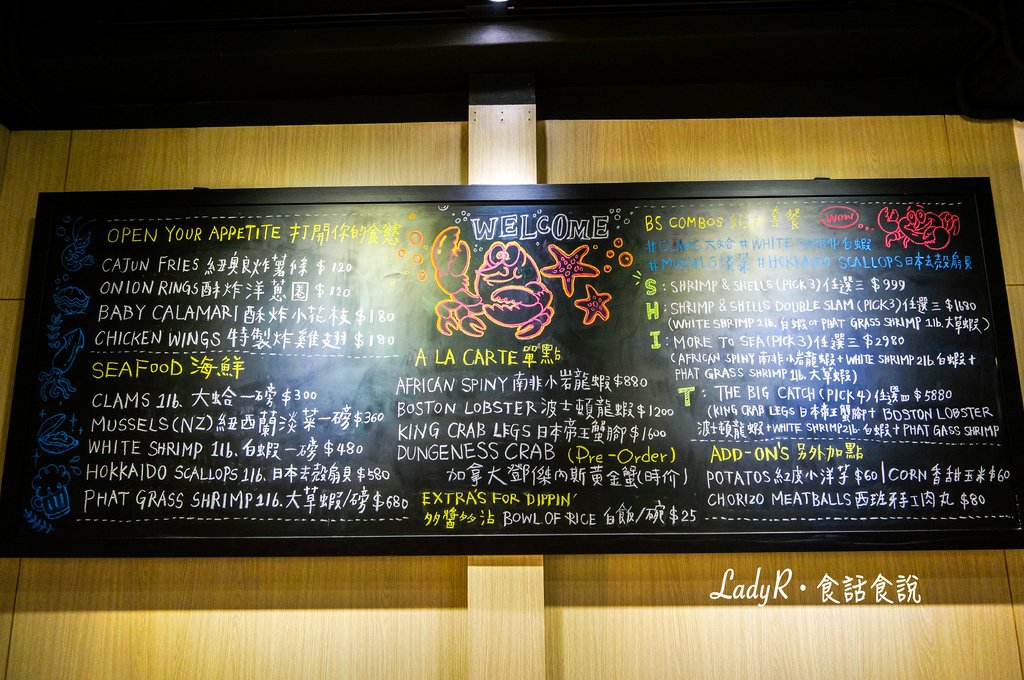 OPEN YOUR APPETITE 打開你的食慾
CAJUN FRIES 紐奧良炸薯條 $120
ONION RINGS 酥炸洋蔥圈 $120
BABY CALAMARI 酥炸小花枝 $180
CHICKEN WINGS 特製炸雞翅 $180
SEAFOOD 海鮮
CLAMS 1lb. 大蛤 一磅 $300
MUSSELS(NZ) 紐西蘭淡菜一磅 $360
WHITE SHRIMP 1lb. 白蝦一磅 $480
HOKKAIDO SCALLOPS 1lb. 日本去殼扇貝 $580
PHAT GRASS SHRIMP 1lb. 大草蝦/磅 $680
WELCOME
A LA CARTE 單點
AFRICAN SPINY 南非小岩龍蝦 $880
BOSTON LOBSTER 波士頓龍蝦 $1200
KING CRAB LEGS 日本帝王蟹腳 $1600
DUNGENESS CRAB (Pre-Order)
加拿大鄧傑內斯黃金蟹(時价)
EXTRA'S FOR DIPPIN'
多醬多沾 BOWL OF RICE 白飯/碗 $25
BS COMBOS 套餐 WOW
#CLAMS 大蛤 #WHITE SHRIMP 白蝦
#MUSSELS 淡菜 #HOKKAIDO SCALLOPS 日本去殼扇貝
S : SHRIMP & SHELLS (PICK 3) 任選三 $999
H : SHRIMP & SHELLS DOUBLE SLAM (PICK3) 任選三 $1680
(WHITE SHRIMP 2lb. 白蝦 or PHAT GRASS SHRIMP 1lb. 大草蝦)
I : MORE TO SEA (PICK 3) 任選三 $2980
(AFRICAN SPINY 南非小岩龍蝦 + WHITE SHRIMP 2lb. 白蝦 +
PHAT GRASS SHRIMP 1lb. 大草蝦)
T : THE BIG CATCH (PICK 4) 任選四 $5880
(KING CRAB LEGS 日本帝王蟹腳 + BOSTON LOBSTER
波士頓龍蝦 + WHITE SHRIMP 2lb. 白蝦 + PHAT GASS SHRIMP
ADD-ON'S 另外加點
POTATOS 紅皮小洋芋 $60 | CORN 香甜玉米 $60
CHORIZO MEATBALLS 西班牙手工肉丸 $80
LadyR・食話食說